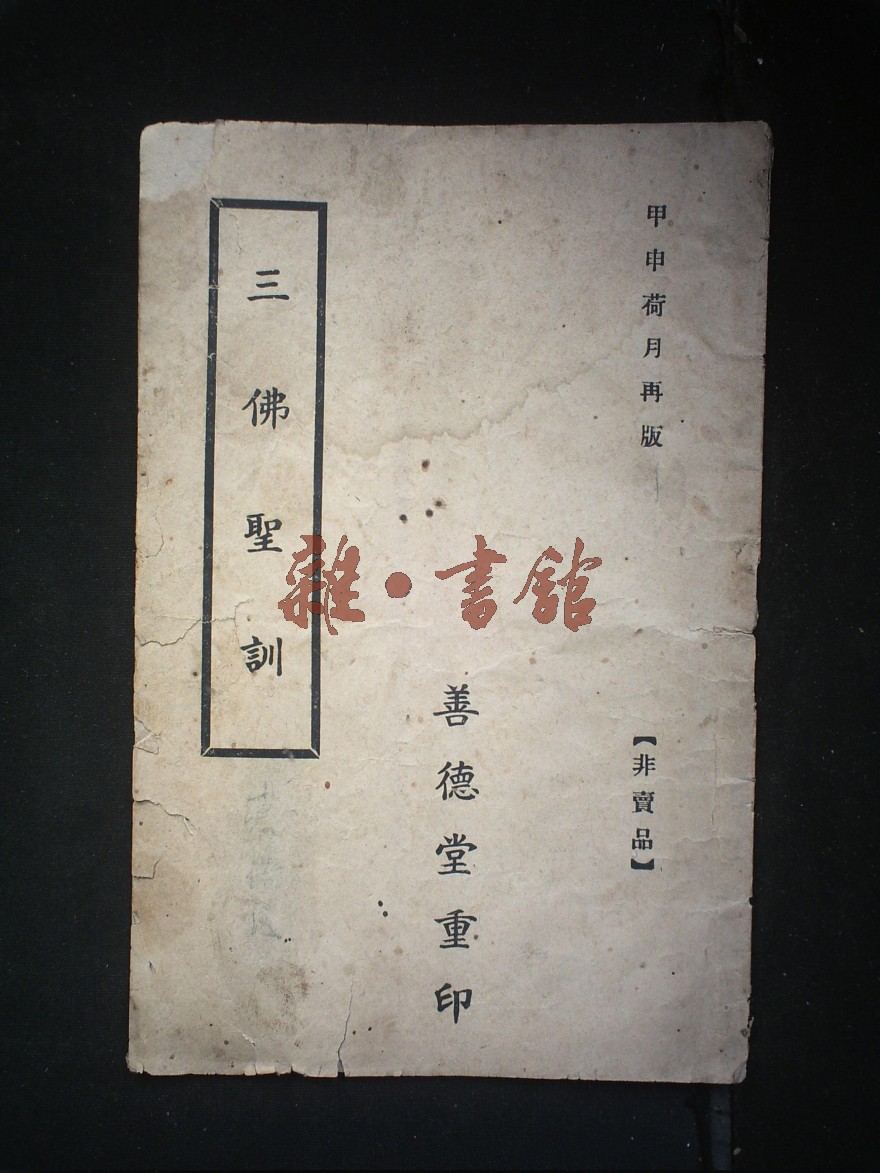 甲申荷月再版
【非賣品】
善德堂重印
三佛聖訓
雜·書館